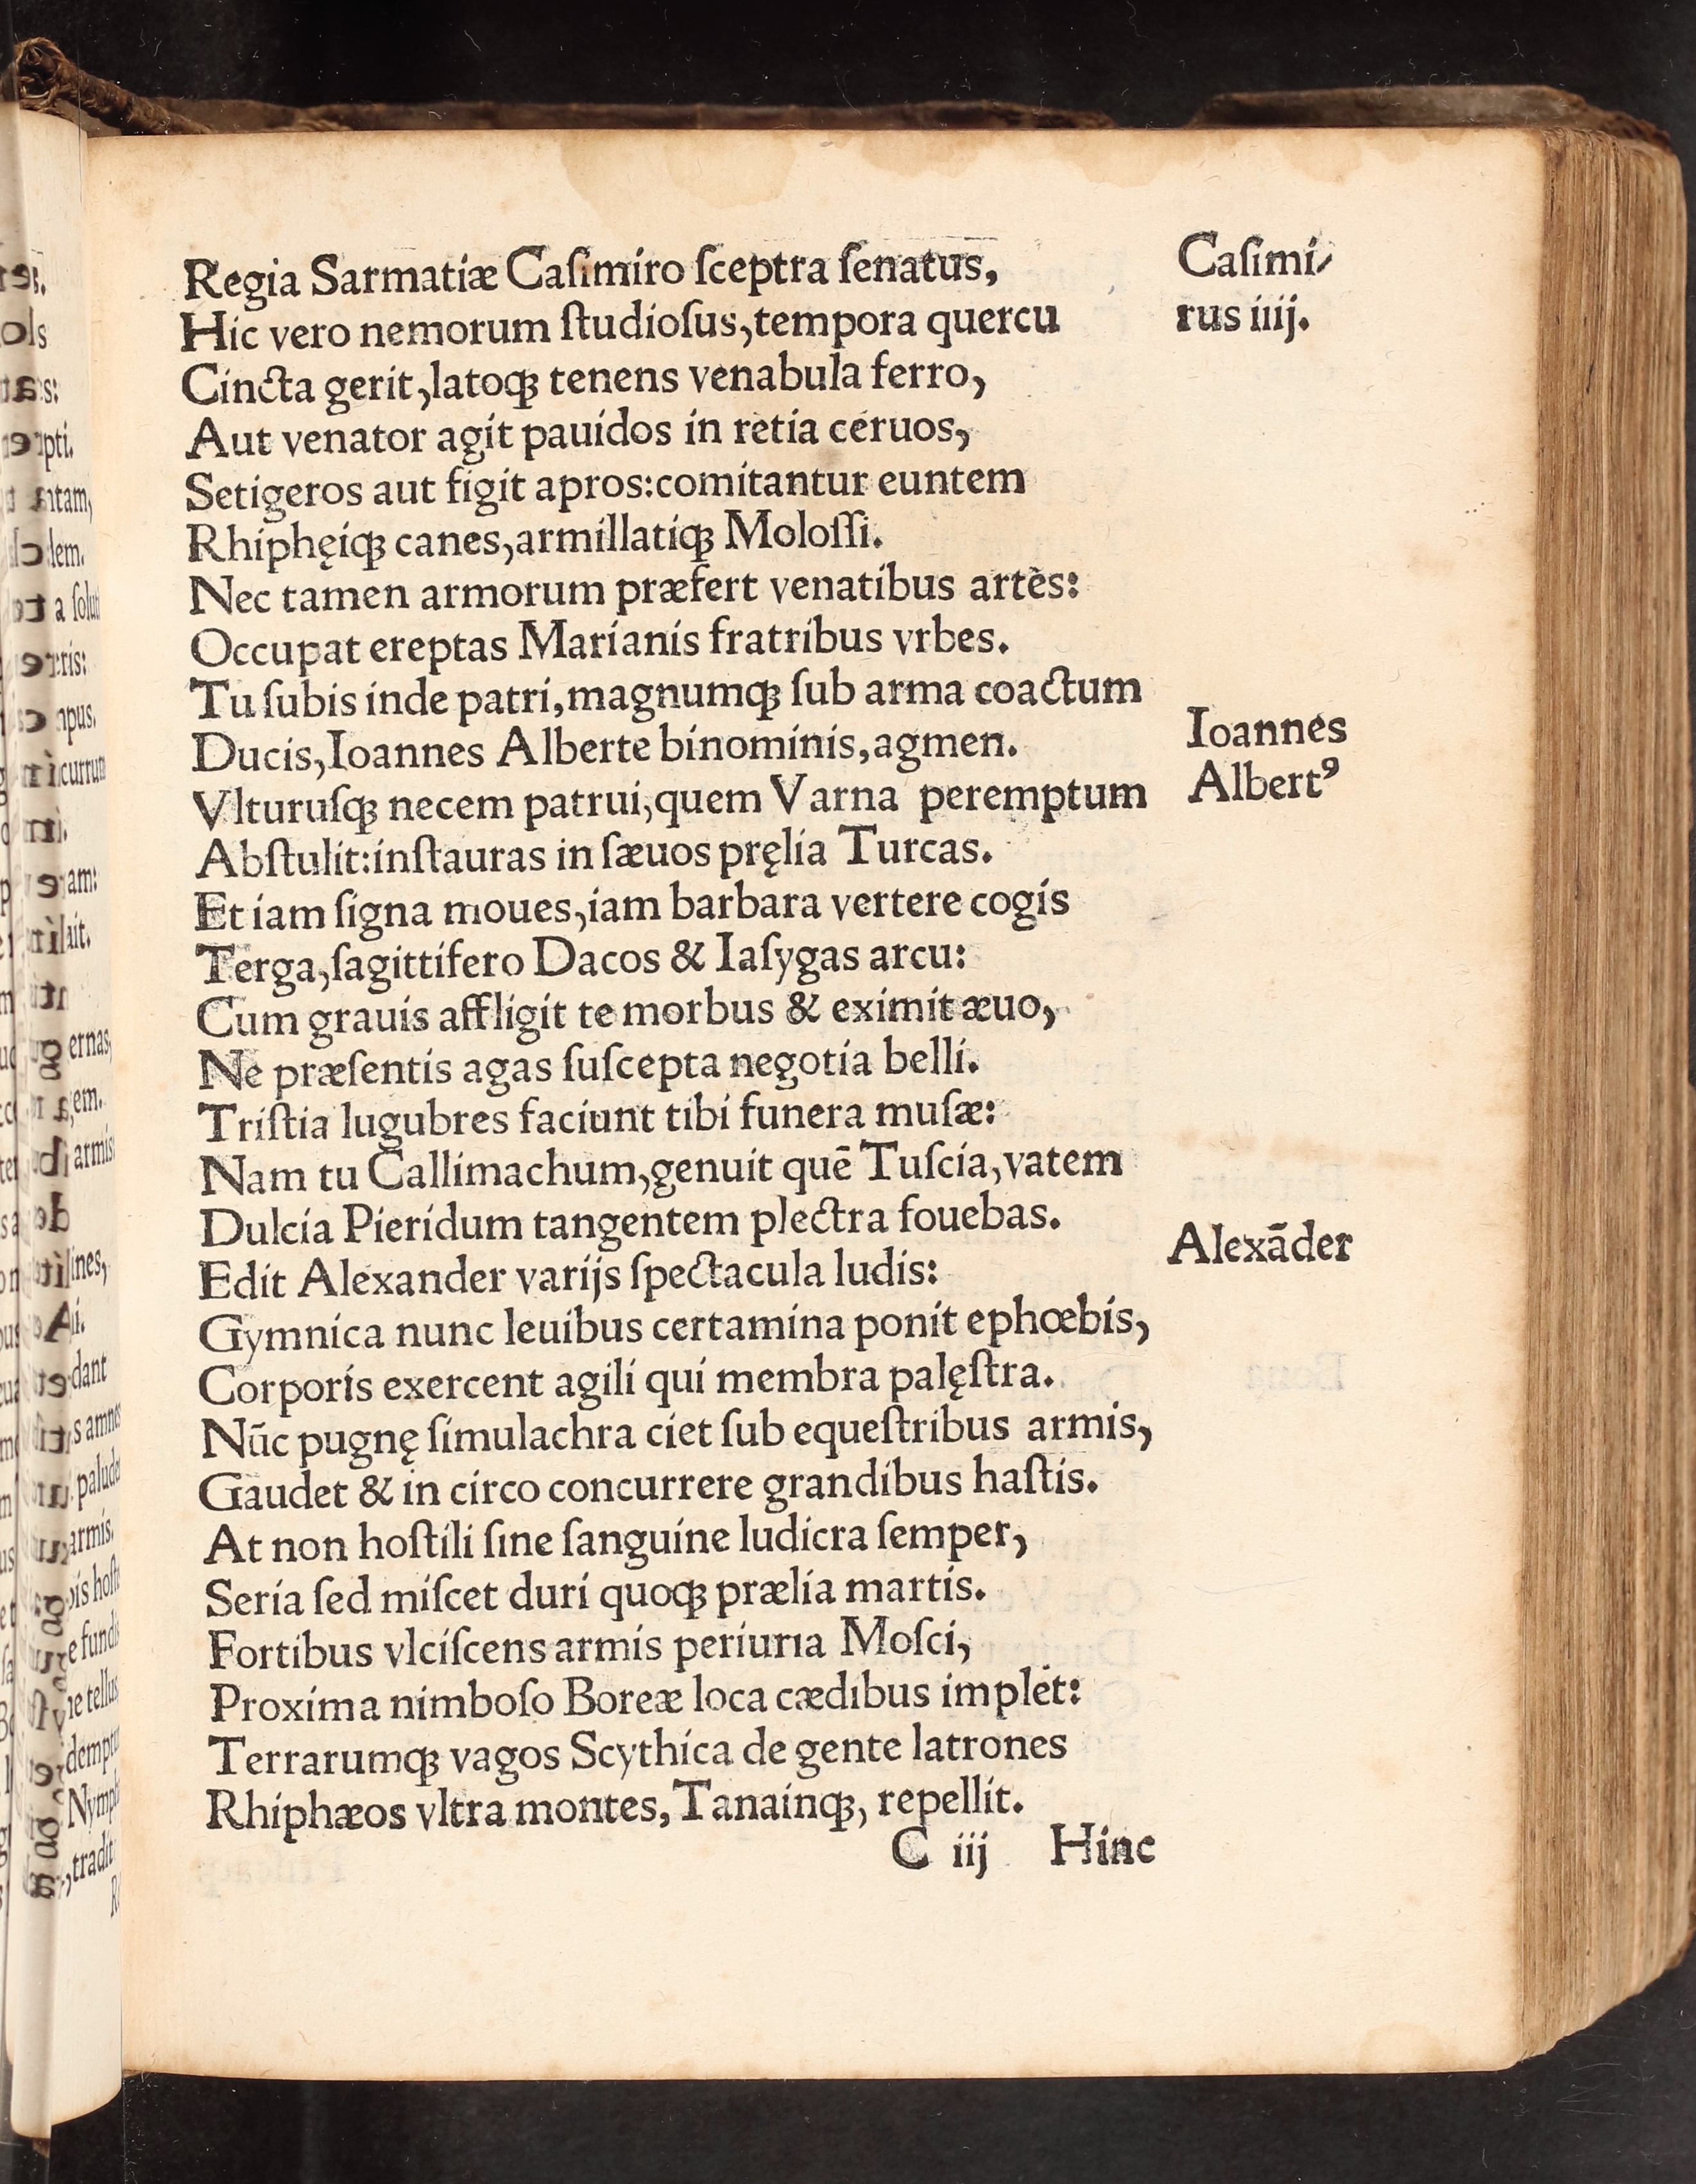 Regia Sarmatiæ Caſimiro ſceptra ſenatus,
Hic vero nemorum ſtudioſus,tempora quercu
Cincta gerit,latoqꝫ tenens venabula ferro,
Aut venator agit pauidos in retia ceruos,
Setigeros aut figit apros:comitantur euntem
Rhiphęiqꝫ canes,armillatiqꝫ Moloſſi.
Nec tamen armorum præfert venatibus artes:
Occupat ereptas Marianis fratribus vrbes.
Tu ſubis inde patri,magnumqꝫ ſub arma coactum
Ducis,Ioannes Alberte binominis,agmen.
Vlturuſqꝫ necem patrui,quem Varna peremptum
Abſtulit:inſtauras in ſæuos pręlia Turcas.
Et iam ſigna moues,iam barbara vertere cogis
Terga,ſagittifero Dacos & Iaſygas arcu:
Cum grauis affligit te morbus & eximit æuo,
Ne præſentis agas ſuſcepta negotia belli.
Triſtia lugubres faciunt tibi funera muſæ:
Nam tu Callimachum,genuit quē Tuſcia,vatem
Dulcia Pieridum tangentem plectra fouebas.
Edit Alexander varijs ſpectacula ludis:
Gymnica nunc leuibus certamina ponit ephœbis,
Corporis exercent agili qui membra palęſtra.
Nūc pugnę ſimulachra ciet ſub equeſtribus armis,
Gaudet & in circo concurrere grandibus haſtis.
At non hoſtili ſine ſanguine ludicra ſemper,
Seria ſed miſcet duri quoqꝫ prælia martis.
Fortibus vlciſcens armis periuria Moſci,
Proxima nimboſo Boreæ loca cædibus implet:
Terrarumqꝫ vagos Scythica de gente latrones
Rhiphæos vltra montes,Tanainqꝫ, repellit.
C iij Hinc
Caſimi⸗
rus iiij.
Ioannes
Albertꝰ
Alexāder